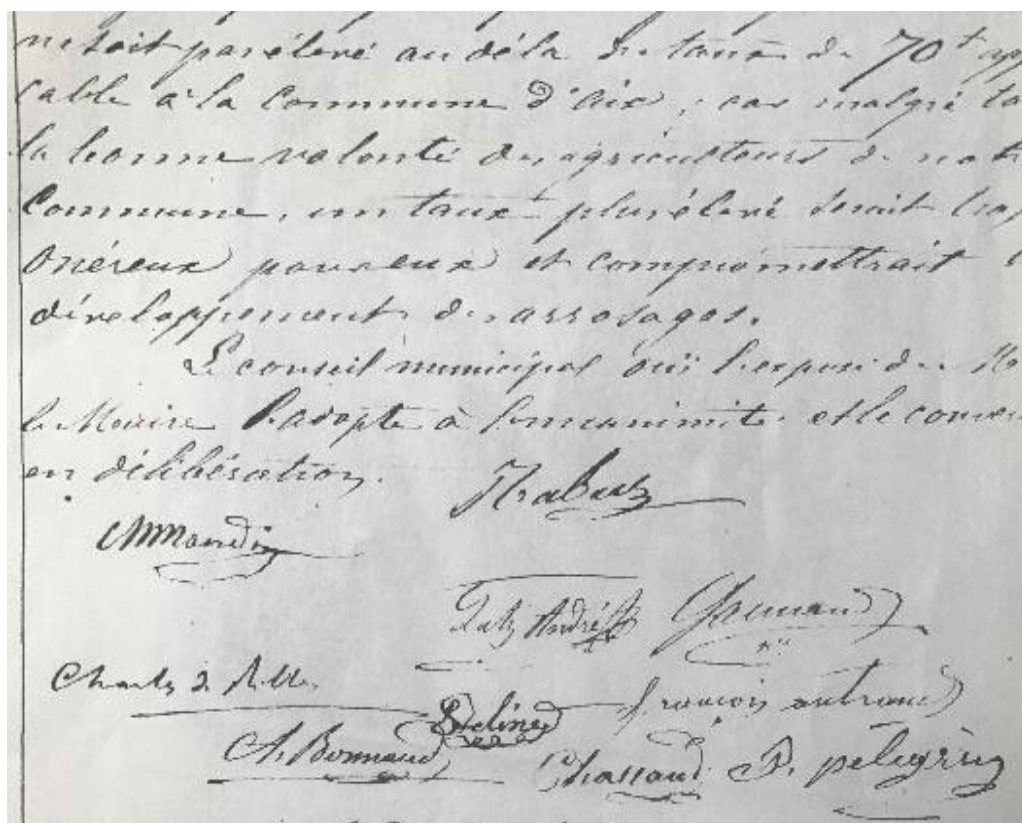 ne soit pas élevé au délà du taux de 70f app
cable à la Commune d'Aix, car malgré to
la bonne volonté des agriculteurs de notr
Commune, un taux plus élevé serait trop
Onéreux pour eux et compromettrait l
développement des arrosages.
Le conseil municipal ouï l'exposé de Mo
le Maire l'adopte à l'unanimité et le conver
en délibération.
Trabuc
Félix André
Charles de Ribbe
François autrand
A. Bonnaud
Chassaud P. pélegrin